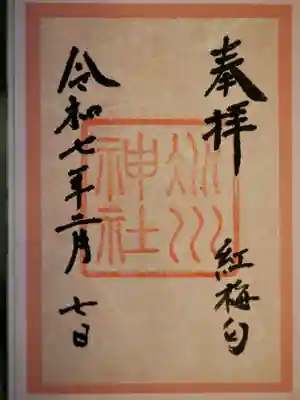 奉拝
紅梅匂
神社
令和七年二月
七日